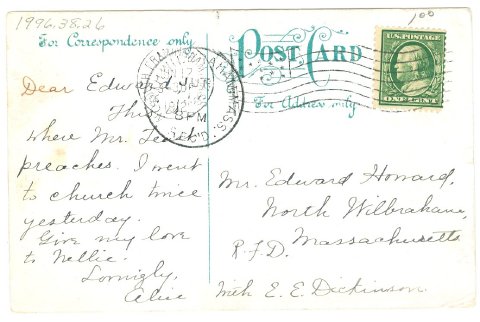 1996.38.26
100
For Correspondence only
POST CARD
For Address only
U.S. POSTAGE
ONE CENT
8 PM
REC'D.
MASS.
Dear Edward,
where Mr.
preaches. I went
to church twice
yesterday.
Give my love
to Nellie.
Lovingly,
Alice
Mr. Edward Howard,
North Wilbraham,
Massachusetts
R.F.D.
With E. E. Dickinson.